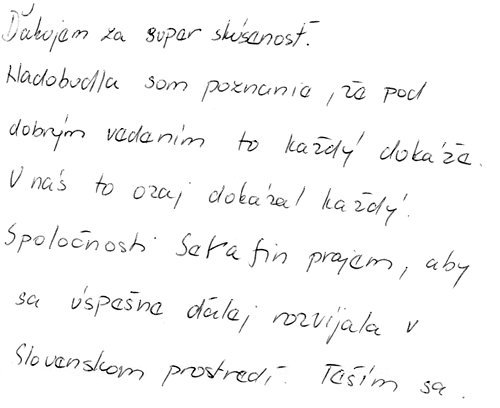 Ďakujem za super skúsenosť.
Nadobudla som poznanie, že pod
dobrým vedením to každý dokáže.
U nás to ozaj dokázal každý.
Spoločnosti Serafin prajem, aby
sa úspešne ďalej rozvíjala v
Slovenskom prostredí. Teším sa.